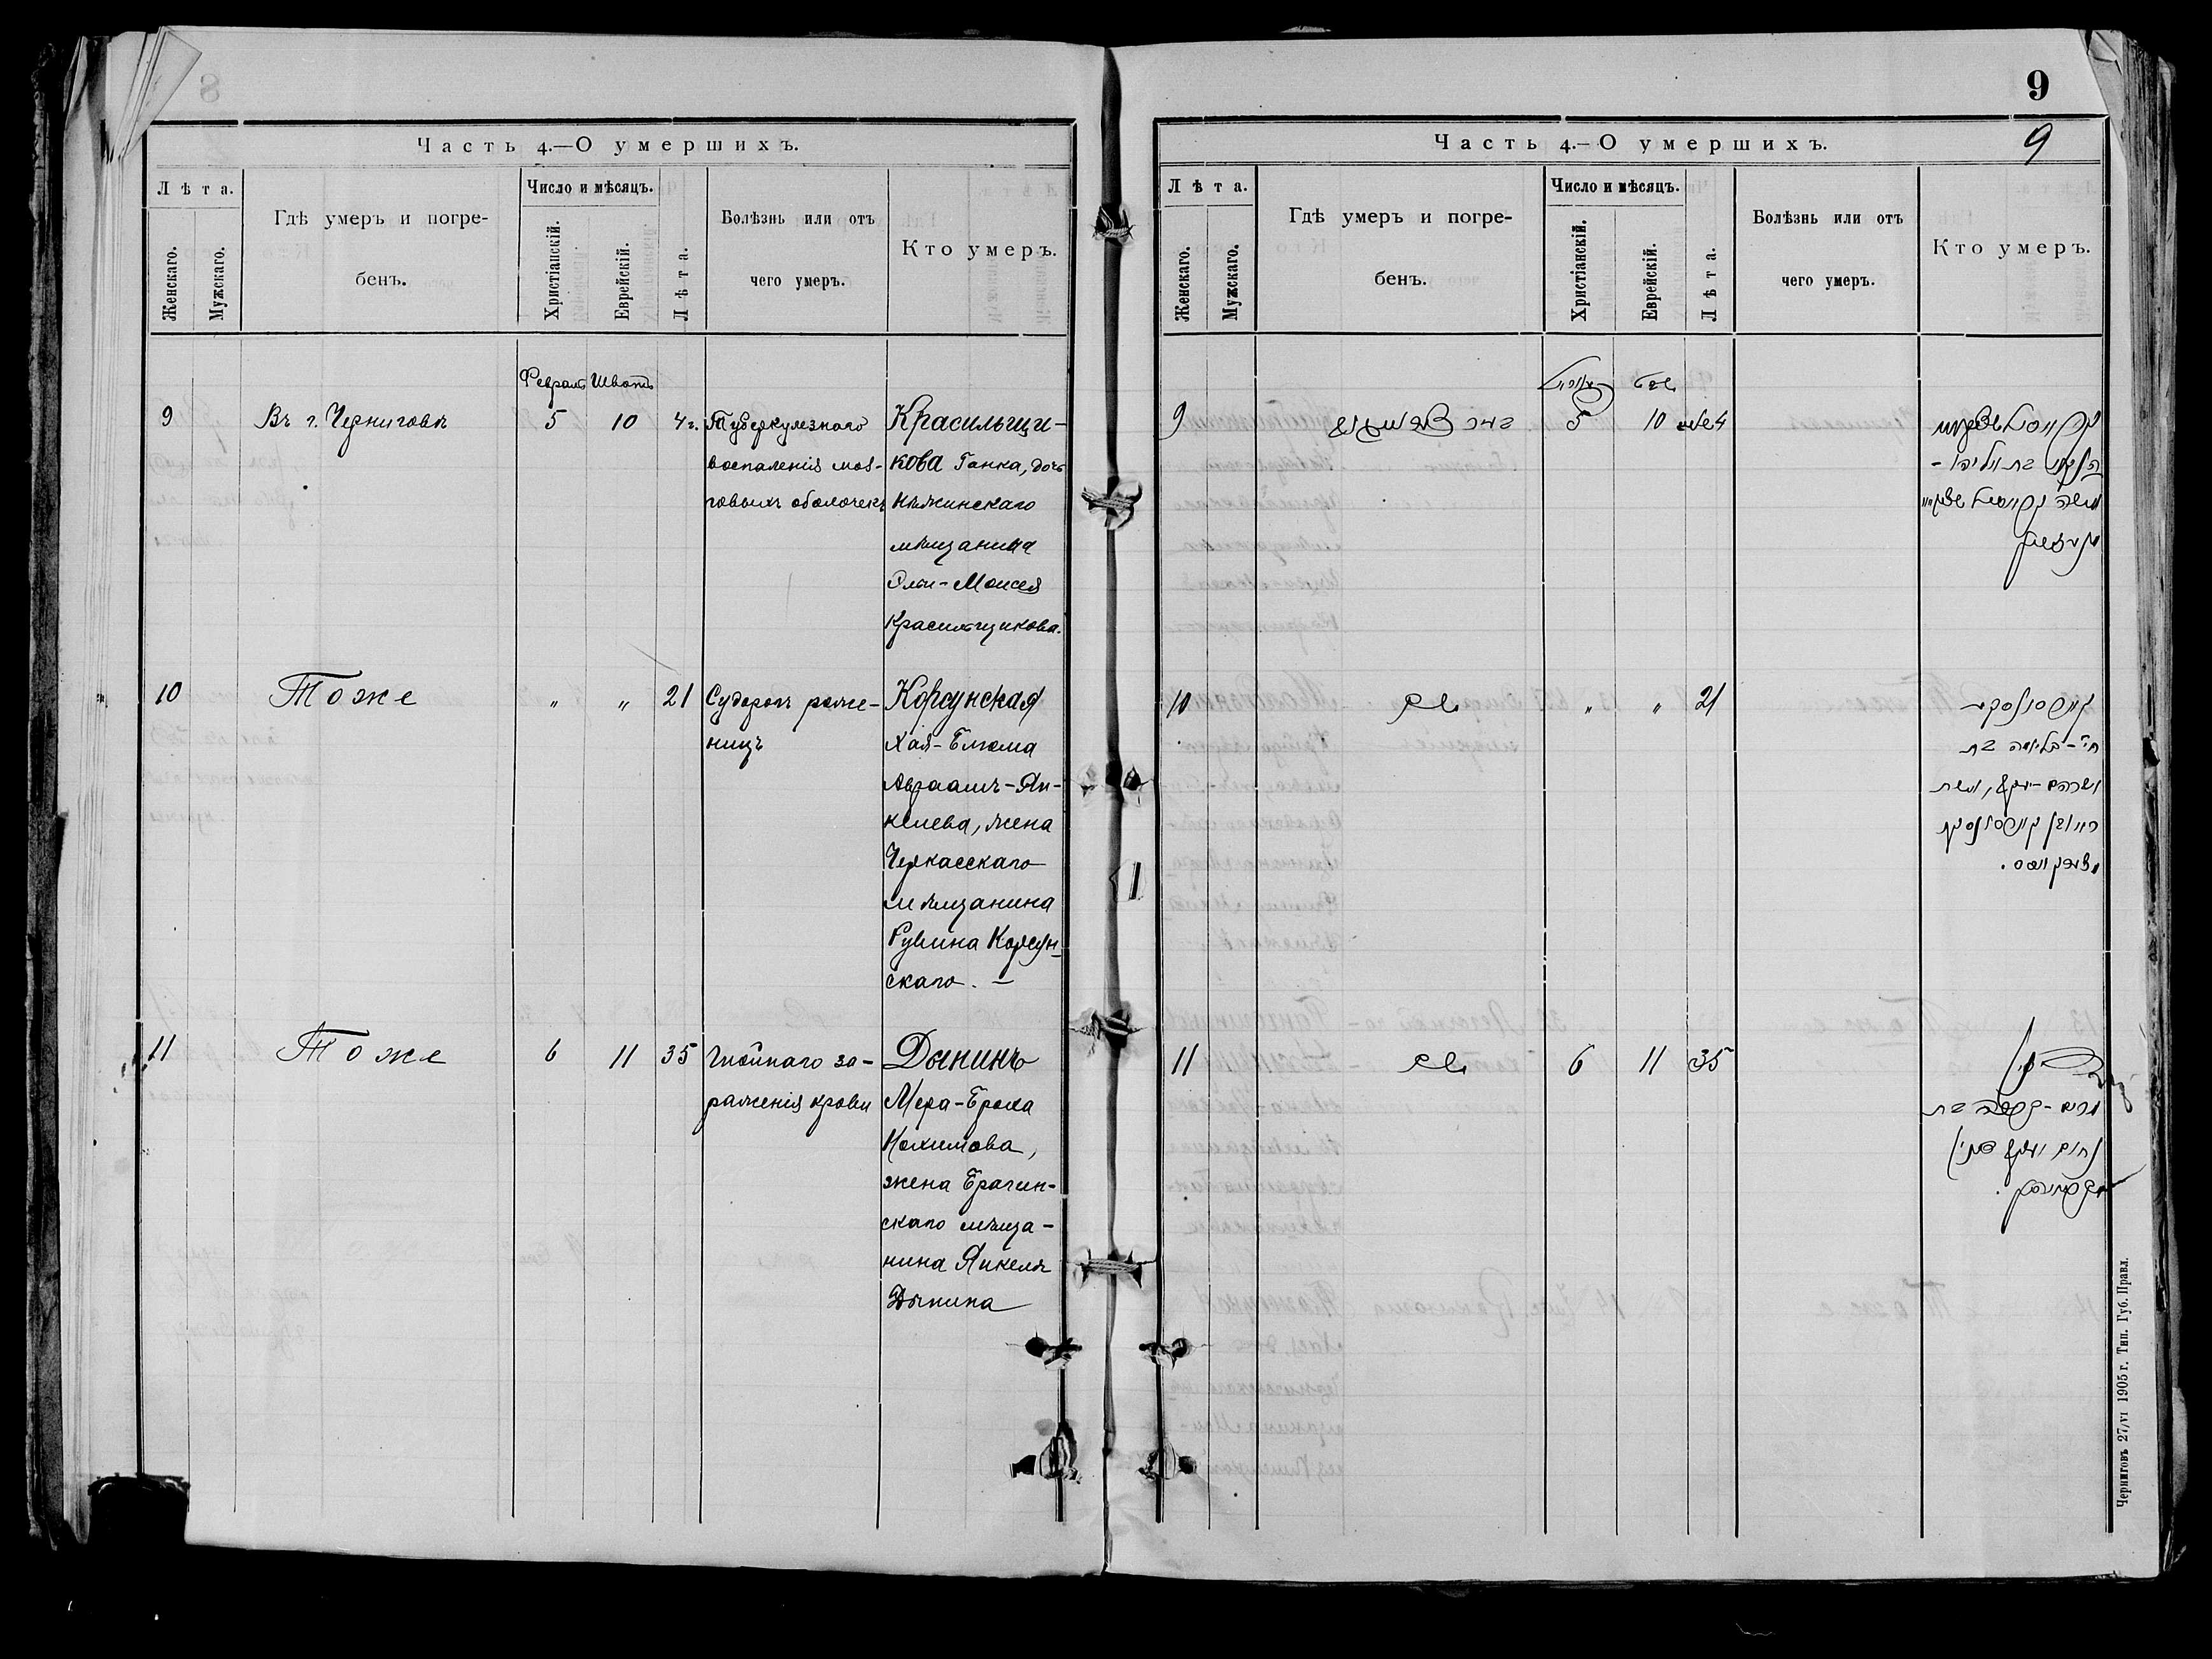 8
Часть 4.—О умершихъ.
Лѣта.
Женскаго.
Мужскаго.
Гдѣ умеръ и погре-
бенъ.
Число и мѣсяцъ.
Христіанскій.
Еврейскій.
Лѣта.
Болѣзнь или отъ
чего умеръ.
Кто умеръ.
Февраль Шватъ
9 Въ г. Черниговѣ 5 10 4 г. Туберкулезнаго
воспаленія моз-
говыхъ оболочекъ
Красильщи-
кова Ганка, дочь
Нѣжинскаго
мѣщанина
Эльи-Моисея
Красильщикова.
10 Тоже " " 21 Судорогъ роже-
ницъ
Корсунская
Хая-Блюма
Авраамъ-Ян-
келева, жена
Черкасскаго
мѣщанина
Рувина Корсун-
скаго. —
11 Тоже 6 11 35 Гнойнаго за-
раженія крови
Дынинъ
Мера-Броха
Нохимова,
жена Брагин-
скаго мѣща-
нина Янкеля
Дынина
9
9
Часть 4.—О умершихъ.
Лѣта.
Женскаго.
Мужскаго.
Гдѣ умеръ и погре-
бенъ.
Число и мѣсяцъ.
Христіанскій.
Еврейскій.
Лѣта.
Болѣзнь или отъ
чего умеръ.
Кто умеръ.
שבט
9 5 10 4
משה
10 " " 21
חי'-בלומה בת
אברהם-יעקב, אשת
11 6 11 35
נחום יעקב דינין
Черниговъ 27/VI 1905 г. Тип. Губ. Правл.